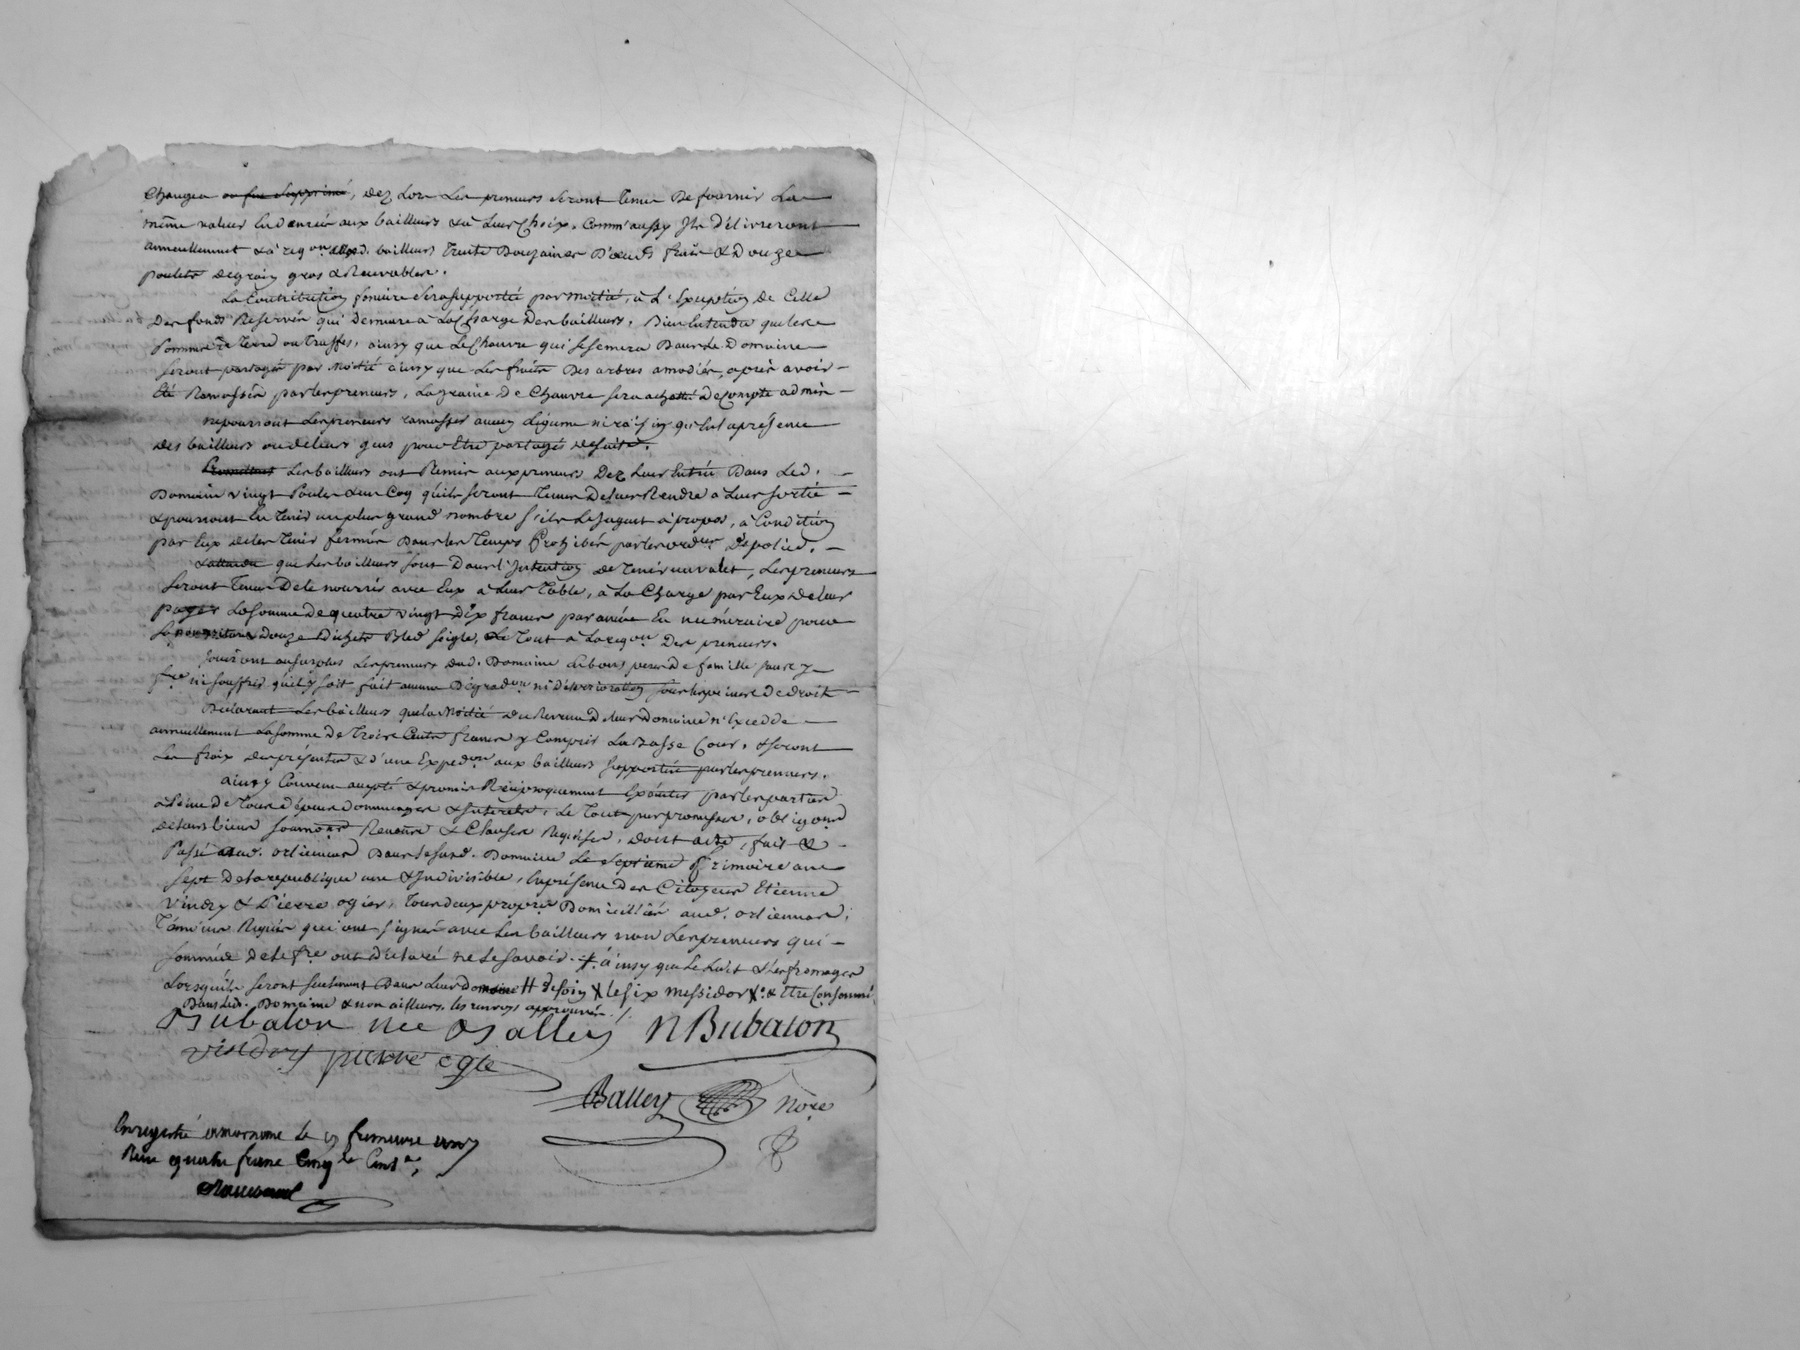 Changea ou fut Supprimé, dez Lors Les preneurs Seront tenus De fournir La
même valeur En denrée aux bailleurs & à Leur Choix. Comm'aussy Ils Délivreront
annuellement & à req.on auxd. bailleurs trente Douzaines D'oeufs frais & Douze
poulets de grain gros & Recevables.
La Contribution fonciere Sera supportée par moitié, à L'Exception de Celle
Des fonds Reservés qui Demeure à La Charge Des bailleurs, Bien Entendu que les
Pommes de terre ou truffes, ainsy que Le Chanvre qui se Semera Dans le Domaine
Seront partagés par Moitié ainsy que Les fruits Des arbres amodiés, après avoir
Eté Ramassés par les preneurs, La graine De Chanvre sera achetté De Compte à demis
ne pourront Les preneurs ramasser aucun Légume ni raisin qu'En La présence
des bailleurs ou de leurs gens pour Etre partagés de suite.
Les bailleurs ont Remis aux preneurs Dez Leur Entrée Dans Led.
Domaine vingt Poules & un Coq qu'ils seront tenus De leur Rendre a Leur sortie
& pourront En tenir un plus grand nombre s'ils Le Jugent à propos, à Condition
par Eux de les tenir fermés Dans les temps Prohibés par les ord.ces De police.
& attendu que Les bailleurs sont Dans l'Intention De tenir un valet, Les preneurs
Seront tenus De le nourrir avec Eux à Leur table, à La Charge par Eux de leur
payer La somme De quatre vingt Dix francs par année En numéraire pour
Sa nourriture Douze bichets Bled seigle, Le tout à La req.on Des preneurs.
Jouiront au surplus Les preneurs dud. Domaine En bons peres De famille sans y
f.re ni souffrir qu'il y soit fait aucune Dégradon ni Déterioration sous Les peines De droit
Déclarant Les bailleurs que la Moitié du Revenu De leur Domaine n'Excedde
annuellement La somme De trois Cents francs y Compris La Basse Cour. & seront
Les fraix des présentes & d'une Expedon aux bailleurs supportés par les preneurs.
ainsy Convenu accepté & promis Réciproquement Exécuter par les parties
à Peine De tous dépens Dommages & Interets, Le tout par promesses, obligons
de leurs biens soumons Renonons & Clauses Requises, Dont acte, fait &
Passé aud. orliennas Dans Le susd. Domaine Le septieme frimaire an
sept De la republique une & Indivisible, En présence Des Citoyens Etienne
Vindry & Pierre ogier, tous deux propres Domiciliés aud. orliennas,
Témoins Requis qui ont signé avec Les bailleurs non Les preneurs qui
sommés De le f.re ont Declaré ne Le savoir. ainsy que Le lait & Les fromages
Lorsqu'ils seront seulement Dans Leur Domaine # De foin X le six messidor X & Etre Consommé
Dans led. Domaine & non ailleurs. les renvoys approuvés ./.
Bubaton nee Balley N Bubaton
vindry pierre ogie
Balley Nore
Enregistré a mornant le frimaire an 7
Reçu quatre franc Cinq.te Cent.es